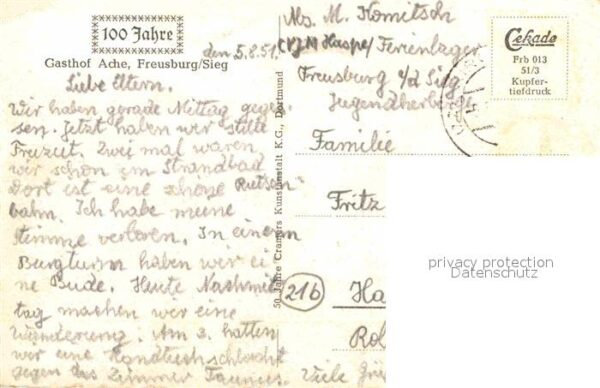 100 Jahre
Gasthof Ache, Freusburg/Sieg
den 5.8.51.
Liebe Eltern.
Wir haben gerade Mittag geges
sen. Jetzt haben wir stille
Freizeit. Zwei mal waren
wir schon im Strandbad
Dort ist eine schöne Rutsch
bahn. Ich habe meine
Stimme verloren. In einem
Burgturm haben wir ei
ne Bude. Heute Nachmit
tag machen wir eine
Wanderung. Am 3. hatten
wir eine Handtuchschlacht
gegen das Zimmer Taunus. Viele Grü
50 Jahre Cramers Kunstanstalt K.G., Dortmund
Abs. M. Komitsch
CVJM Haspe/ Ferienlager
Freusburg a/d Sieg
Jugendherberge
Cekade
Frb 013
51/3
Kupfer-
tiefdruck
Familie
Fritz
21b
Ha
Rol
privacy protection
Datenschutz